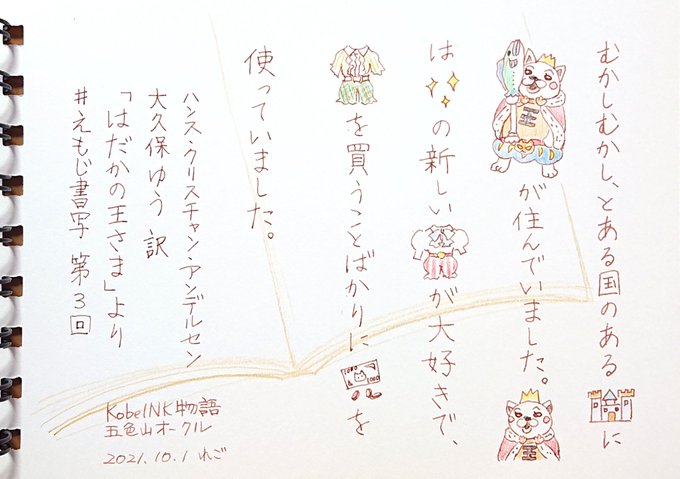 むかしむかし、とある国のある に
王 が住んでいました。 王
は の新しい が大好きで、
を買うことばかりに を
使っていました。
ハンス・クリスチャン・アンデルセン
大久保ゆう 訳
「はだかの王さま」より
#えもじ書写 第3回
KobeINK物語
五色山オークル
2021.10.1 れご